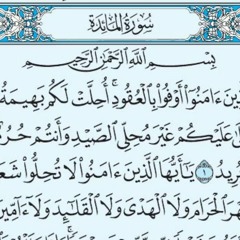 سُورَةُ المَائِدَةِ
بِسْمِ ٱللَّهِ ٱلرَّحْمَٰنِ ٱلرَّحِيمِ
ءَامَنُوٓا۟ أَوْفُوا۟ بِٱلْعُقُودِ ۚ أُحِلَّتْ لَكُم بَهِيمَةُ
عَلَيْكُمْ غَيْرَ مُحِلِّى ٱلصَّيْدِ وَأَنتُمْ حُرُمٌ
يُرِيدُ ١ يَٰٓأَيُّهَا ٱلَّذِينَ ءَامَنُوا۟ لَا تُحِلُّوا۟
ٱلْحَرَامَ وَلَا ٱلْهَدْىَ وَلَا ٱلْقَلَٰٓئِدَ وَلَآ ءَآمِّينَ